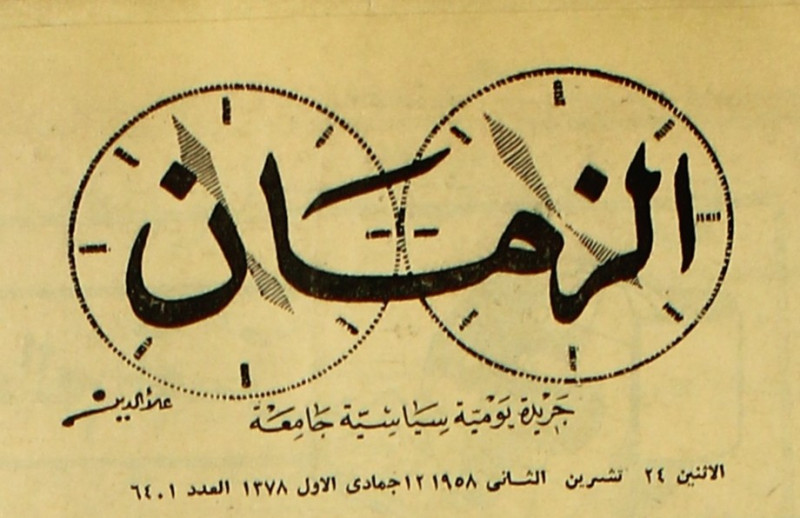 الزمان
جَريْدة يَوْميَة سِيَاسِيّة جَامِعَة
علاءالدين
الاثنين ٢٤ تشرين الثانى ١٩٥٨ ١٢ جمادى الاول ١٣٧٨ العدد ٦٤٠١